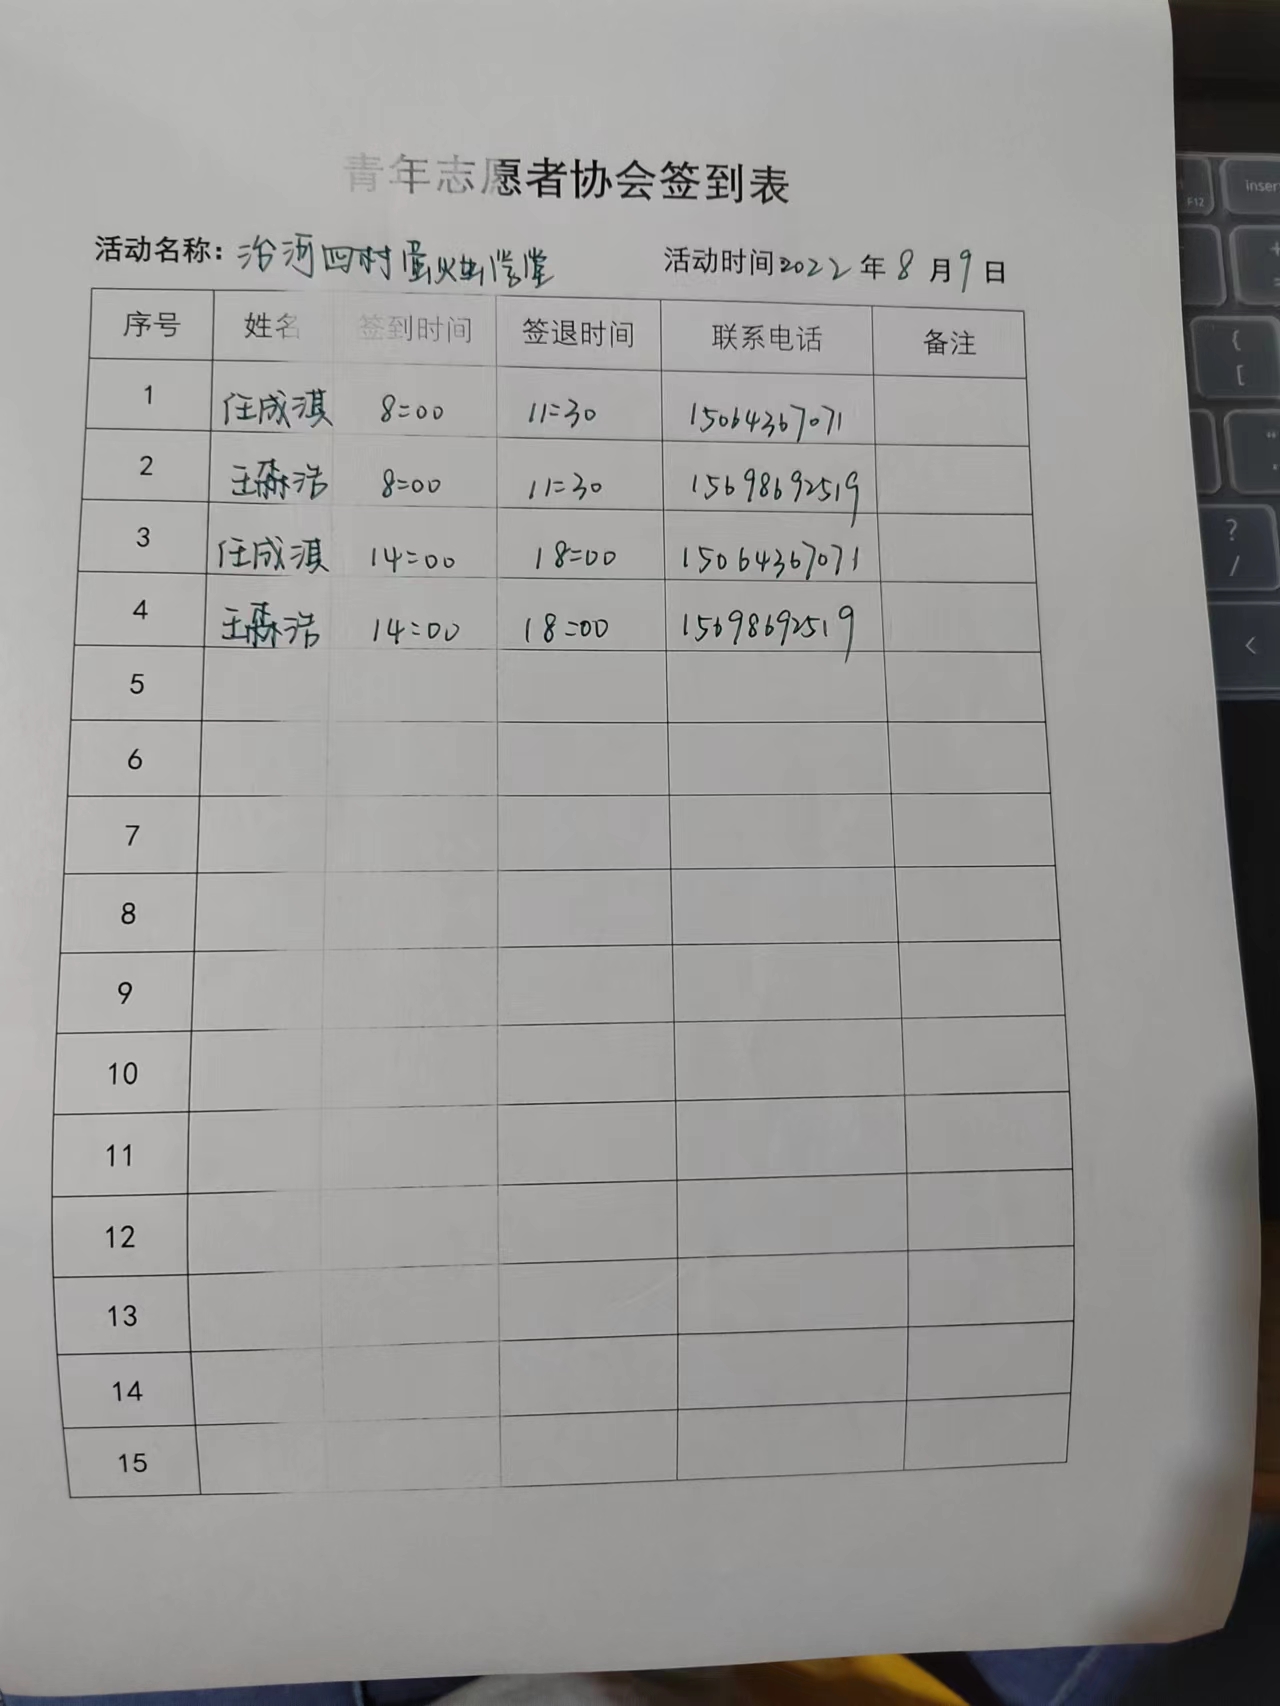 青年志愿者协会签到表
活动名称：治河四村萤火虫学堂 活动时间2022年8月9日
序号 姓名 签到时间 签退时间 联系电话 备注
1 任成淇 8:00 11:30 15064367071
2 王淼浩 8:00 11:30 15698692519
3 任成淇 14:00 18:00 15064367071
4 王淼浩 14:00 18:00 15698692519
5
6
7
8
9
10
11
12
13
14
15
F12
inser
{
[
?
/
<